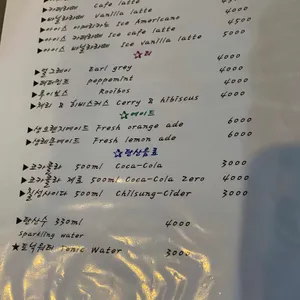 ▶카페라떼 Cafe latte 4000
▶바닐라라떼 Vanilla latte 4000
▶아이스 아메리카노 Ice Americano 4000
▶아이스 카페라떼 Ice cafe latte 4500
▶아이스 바닐라라떼 Ice vanilla latte 5000
☆티
▶얼그레이 Earl grey 4000
▶페퍼민트 peppemint 4000
▶루이보스 Rooibos 4000
▶체리 & 히비스커스 Cerry & hibiscus 4000
☆에이드
▶생오렌지에이드 Fresh orange ade 6000
▶생레몬에이드 Fresh lemon ade 6000
☆탄산음료
▶코카콜라 500ml Coca-Cola 3000
▶코카콜라 제로 500ml Coca-Cola Zero 4000
▶칠성사이다 500ml Chilsung-Cider 3000
▶탄산수 330ml 4000
Sparkling water
★토닉워터 Tonic Water 3000